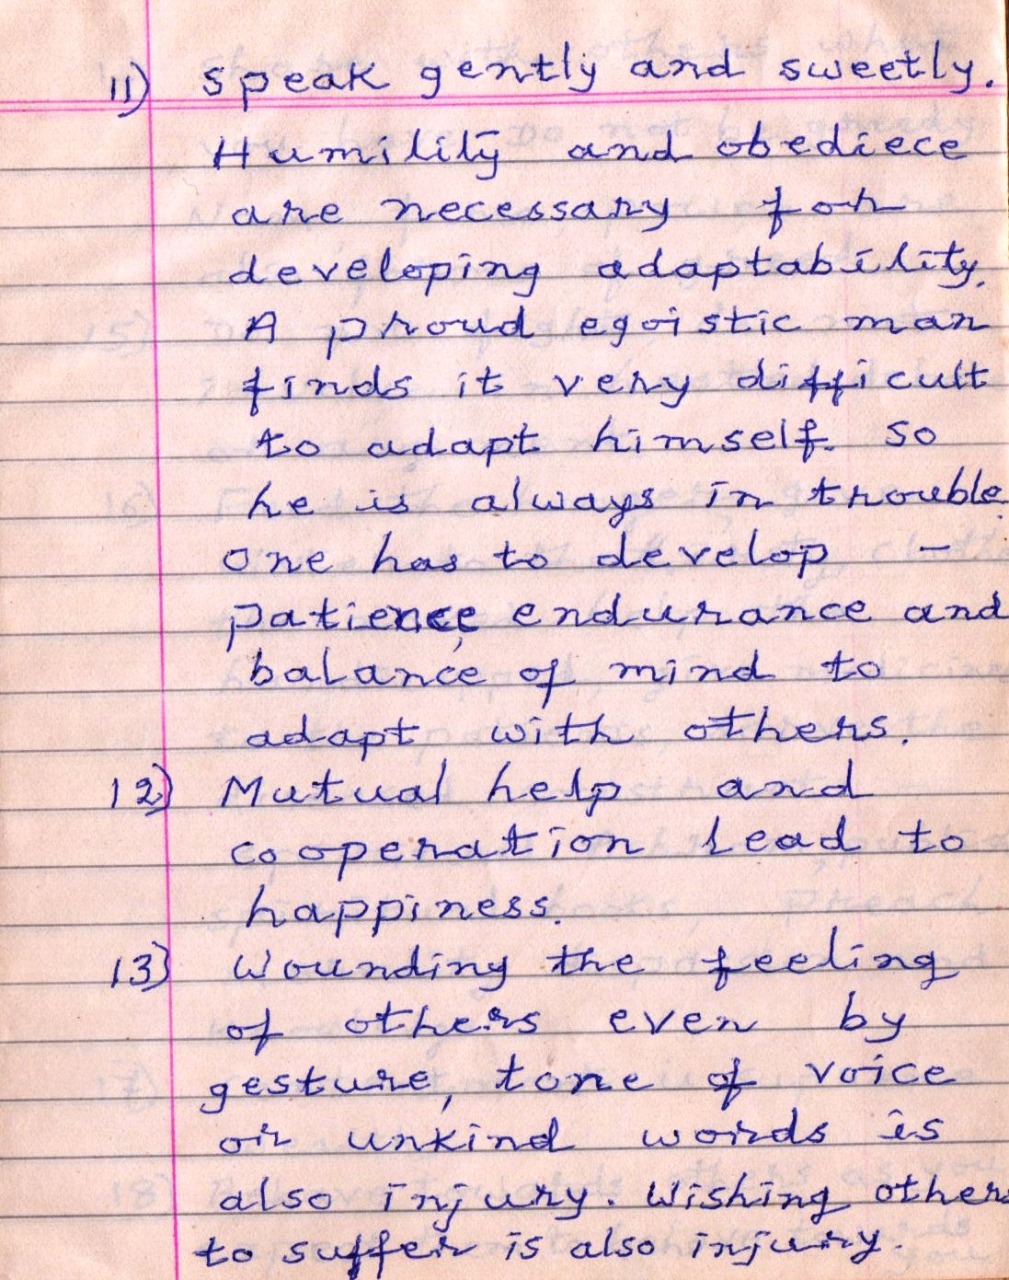 11) Speak gently and sweetly.
Humility and obediece
are necessary for
developing adaptability.
A proud egoistic man
finds it very difficult
to adapt himself. So
he is always in trouble.
One has to develop -
patience, endurance and
balance of mind to
adapt with others.
12) Mutual help and
cooperation lead to
happiness.
13) Wounding the feeling
of others even by
gesture, tone of voice
or unkind words is
also injury. Wishing others
to suffer is also injury